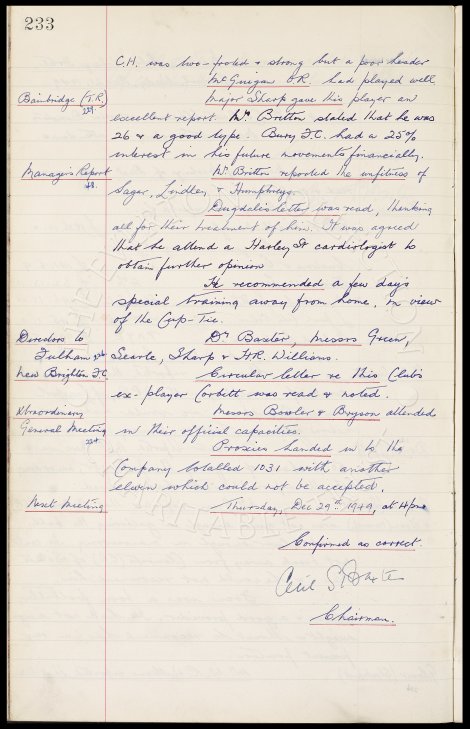 233
C.H. was two-footed & strong but a poor header
McGuigan O.R. had played well
Bainbridge (I.R.) Major Sharp gave this player an
excellent report. Mr Britton stated that he was
26 & a good type. Bury F.C. had a 25%
interest in his future movements financially.
Manager's Report Mr Britton reported the unfitness of
Sagar, Lindley & Humphreys.
Dugdale's letter was read, thanking
all for their treatment of him. It was agreed
that he attend a Harley St cardiologist to
obtain further opinion
He recommended a few day's
special training away from home, in view
of the Cup-Tie.
Directors to Dr Baxter, Messrs Green,
Fulham Searle, Sharp & H.R. Williams.
New Brighton F.C. Circular letter re this Club's
ex-player Corbett was read & noted.
Xtraordinary Messrs Bowler & Bryson attended
General Meeting in their official capacities.
Proxies handed in to the
Company totalled 1031 with another
eleven which could not be accepted.
Next Meeting Thursday, Dec 29th 1949, at 4pm
Confirmed as correct.
Cecil S Baxter
Chairman.